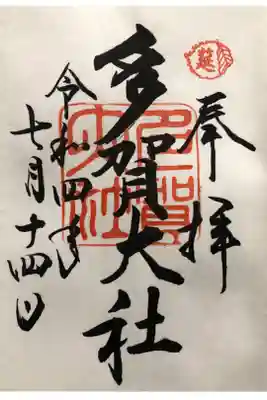 奉拝
多賀大社
令和四年
七月十四日
莚
多賀大社